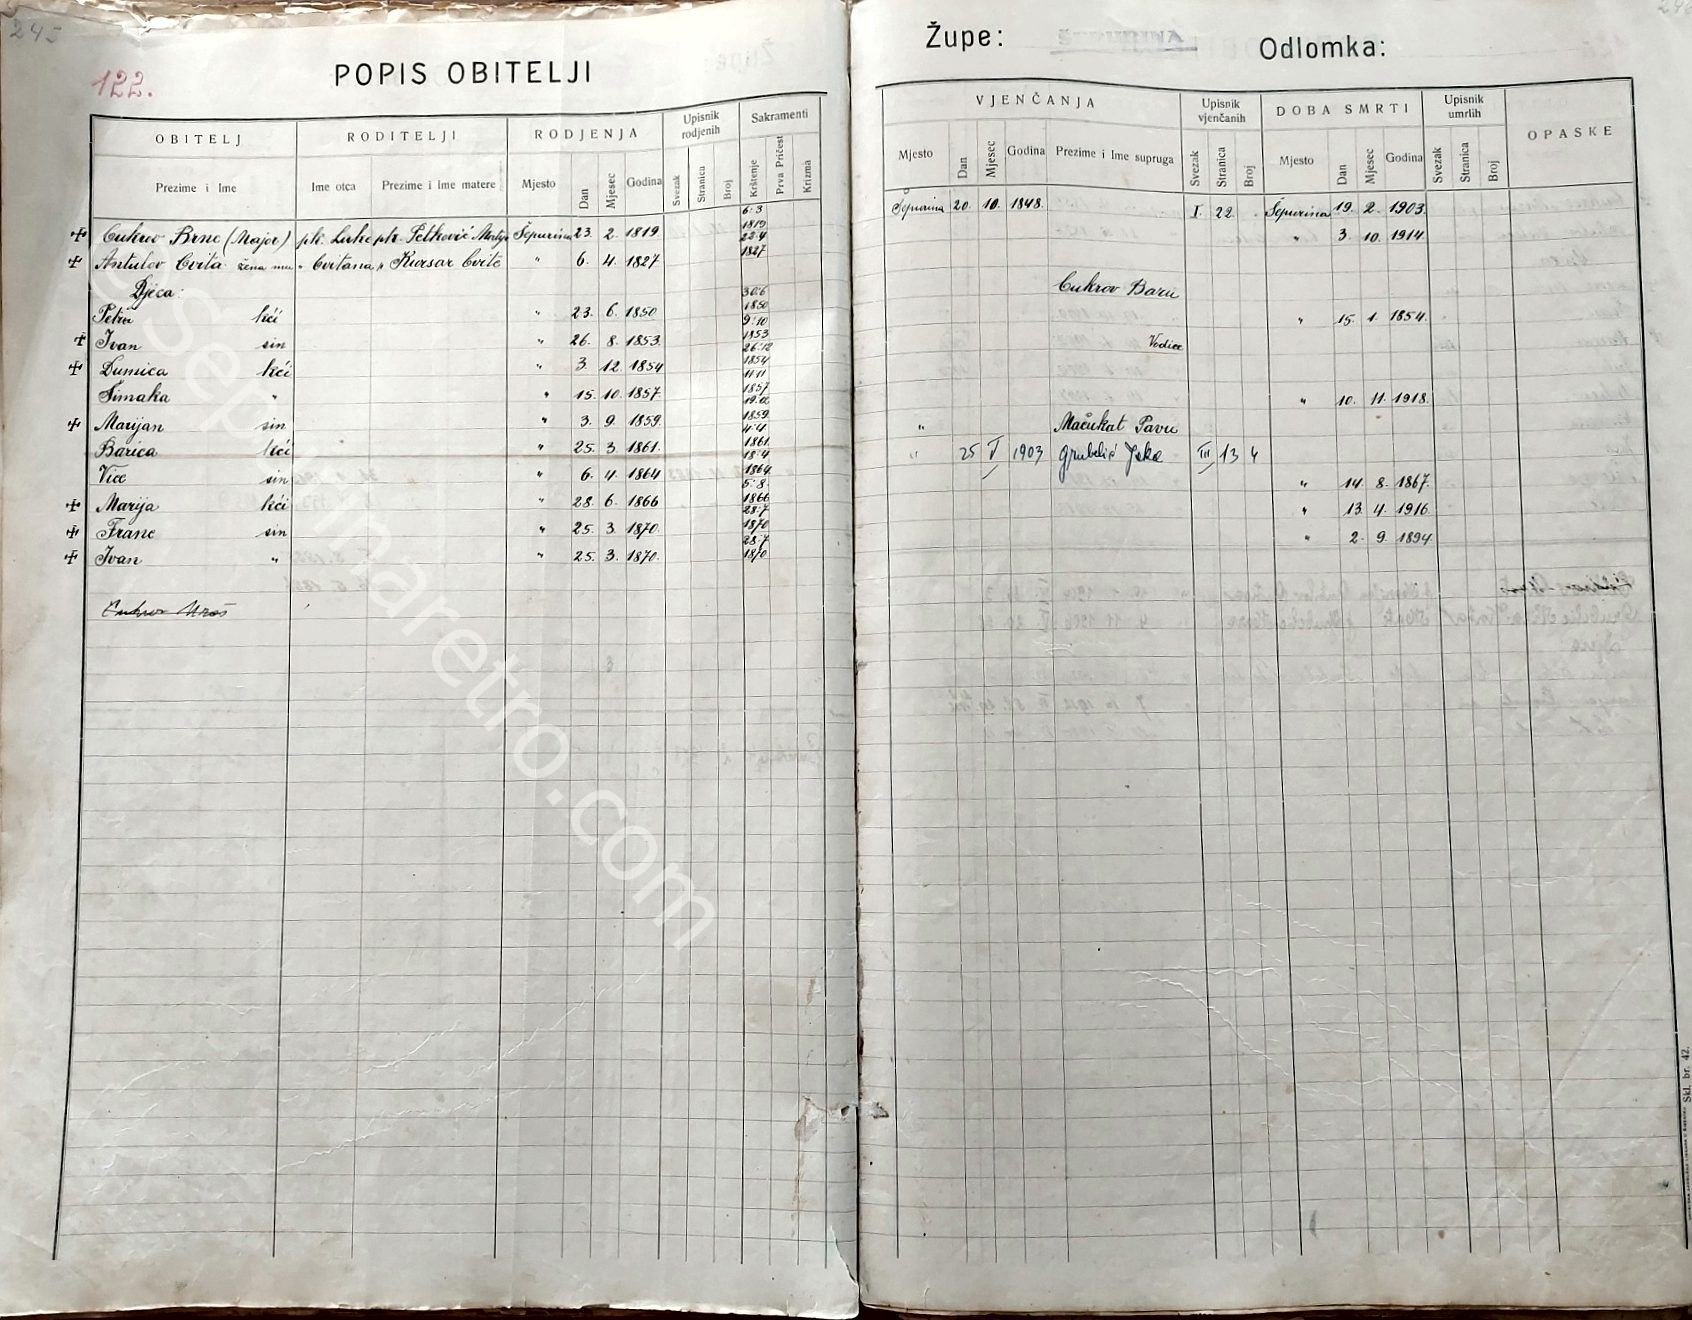 245
122.
POPIS OBITELJI
OBITELJ RODITELJI RODJENJA Upisnik rodjenih Sakramenti
Prezime i Ime Ime otca Prezime i Ime matere Mjesto Dan Mjesec Godina Svezak Stranica Broj Krštenje Prva Pričest Krizma
6·3
Cukrov Brne (Major) pk. Luke pk. Petković Matije Šepurina 23. 2. 1819. 1819
22·4
Antulov Cvita žena mu " Cvitana " Kursar Cvite " 6. 4. 1827. 1827
Djeca:
30·6
Petru kći " 23. 6. 1850 1850
9·10
Ivan sin " 26. 8. 1853. 1853
26·12
Dumica kći " 3. 12. 1854 1854
11·11
Šimaka " " 15. 10. 1857. 1857
Marijan sin " 3. 9. 1859. 1859
4·4
Barica kći " 25. 3. 1861. 1861
18·4
Vice sin " 6. 4. 1864 1864
5·8
Marija kći " 28. 6. 1866 1866
28·7
Frane sin " 25. 3. 1870. 1870
28·7
Ivan " " 25. 3. 1870. 1870
Cukrov Uroš
Župe: ŠEPURINA Odlomka:
VJENČANJA Upisnik vjenčanih DOBA SMRTI Upisnik umrlih OPASKE
Mjesto Dan Mjesec Godina Prezime i Ime supruga Svezak Stranica Broj Mjesto Dan Mjesec Godina Svezak Stranica Broj
Šepurina 20. 10. 1848. I. 22. Šepurina 19. 2. 1903.
" 3. 10. 1914.
Cukrov Baru
" 15. 1. 1854.
Vodice
" 10. 11. 1918.
" Mačukat Pavu
" 25 I 1903 Grubelić Joka III 13 4
" 14. 8. 1867.
" 13. 4. 1916.
" 2. 9. 1894.
Skl. br. 42.
sepurinaretro.com